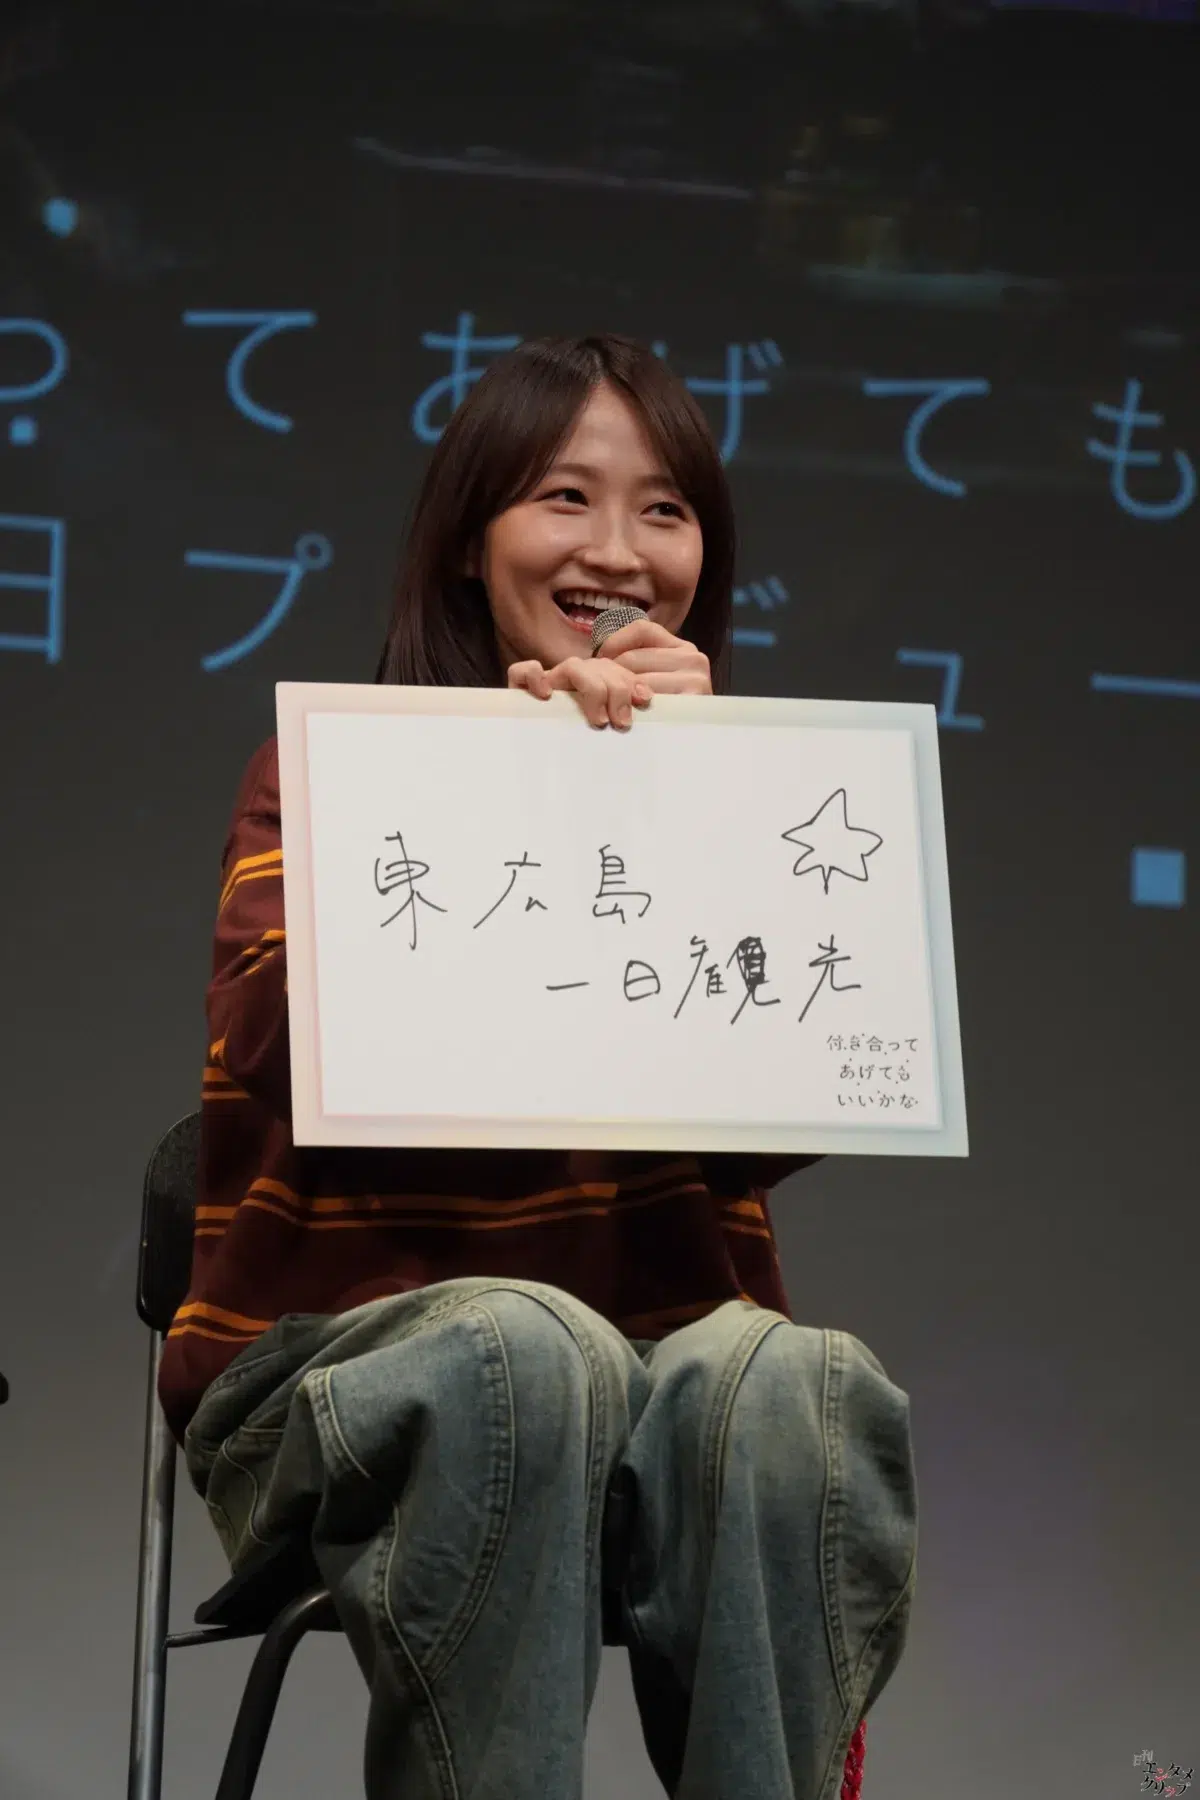 ってあげても
日プ ビュー
東広島
一日観光
付き合って
あげても
いいかな
日刊
エンタメ
クリップ